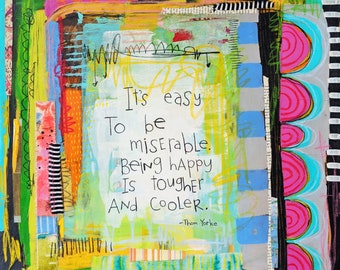 It's easy
To be
miserable.
Being happy
Is Tougher
And cooler..
-Thom Yorke